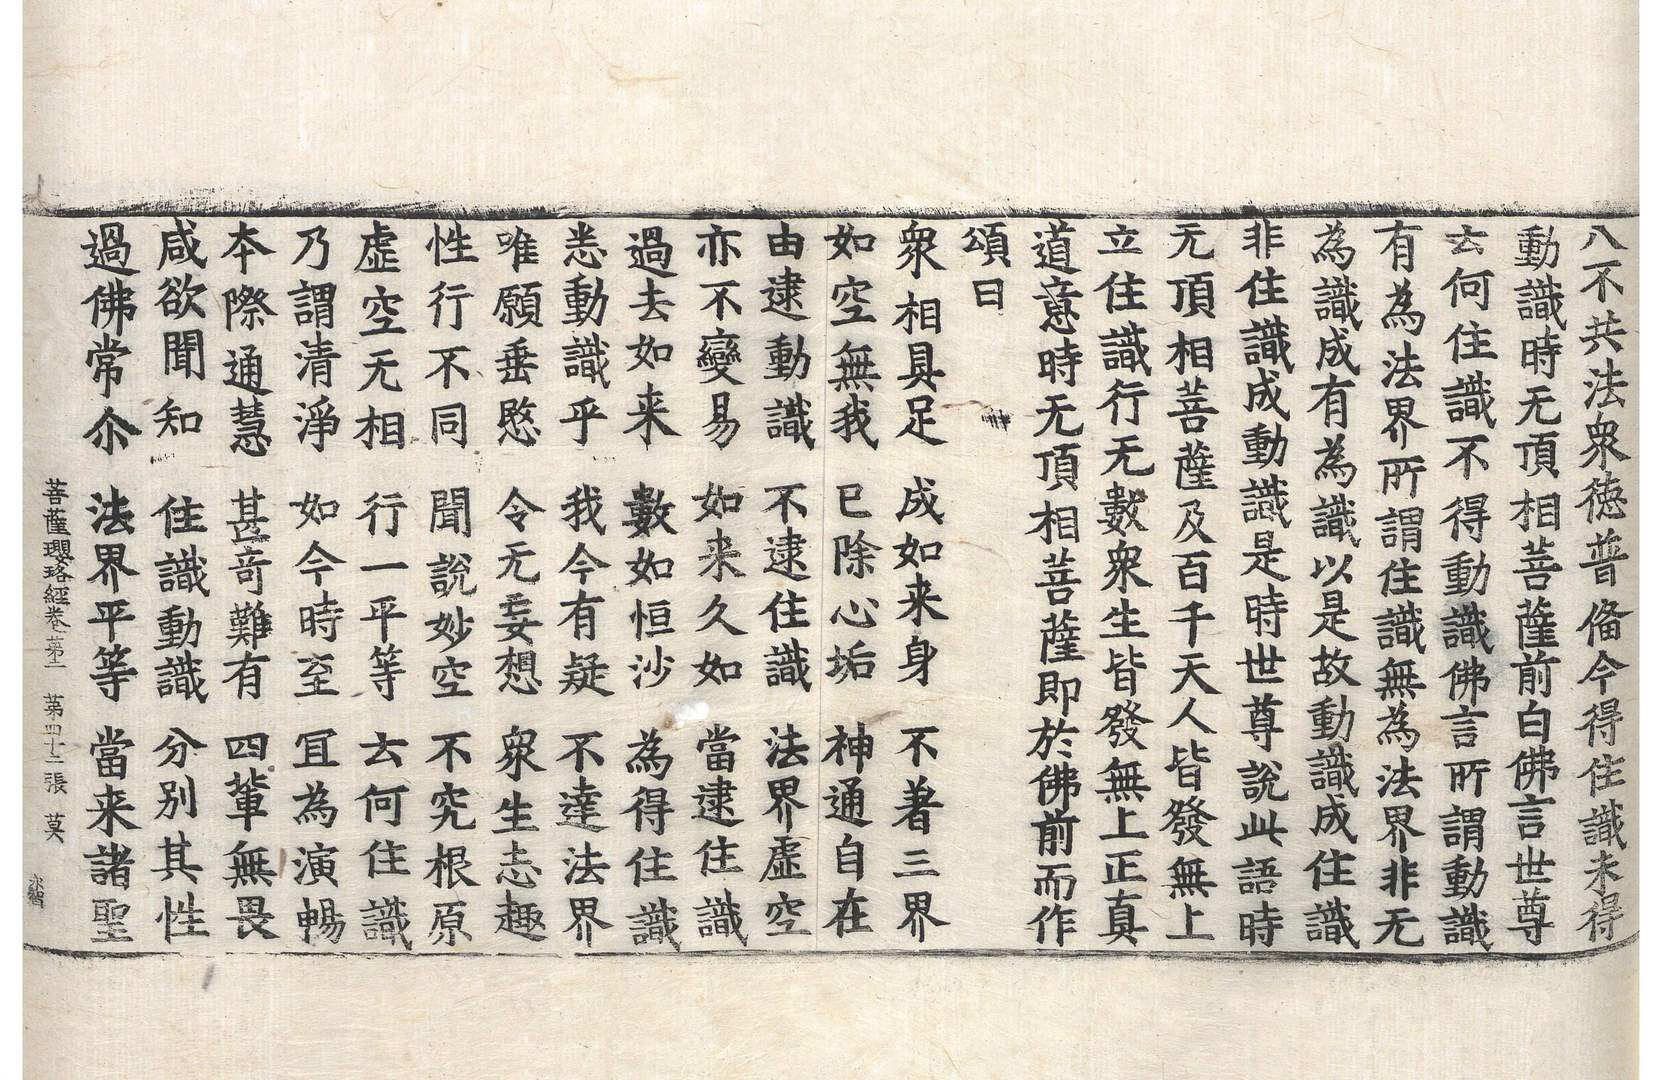 八不共法衆徳普俻今得住識未得
動識時无頂相菩薩前白佛言世尊
云何住識不得動識佛言所謂動識
有為法界所謂住識無為法界非无
為識成有為識以是故動識成住識
非住識成動識是時世尊說此語時
无頂相菩薩及百千天人皆發無上
立住識行无數衆生皆發無上正真
道意時无頂相菩薩即於佛前而作
頌曰
衆相具足 成如来身 不著三界
如空無我 已除心垢 神通自在
由逮動識 不逮住識 法界虛空
亦不變易 如来久如 當逮住識
過去如来 數如恒沙 為得住識
悉動識乎 我今有疑 不達法界
唯願垂愍 令无妄想 衆生志趣
性行不同 聞說妙空 不究根原
虛空无相 行一平等 云何住識
乃謂清淨 如今時至 冝為演暢
本際通慧 甚奇難有 四輩無畏
咸欲聞知 住識動識 分別其性
過佛常尒 法界平等 當来諸聖
菩薩瓔珞經卷第十一 第四十二張 莫